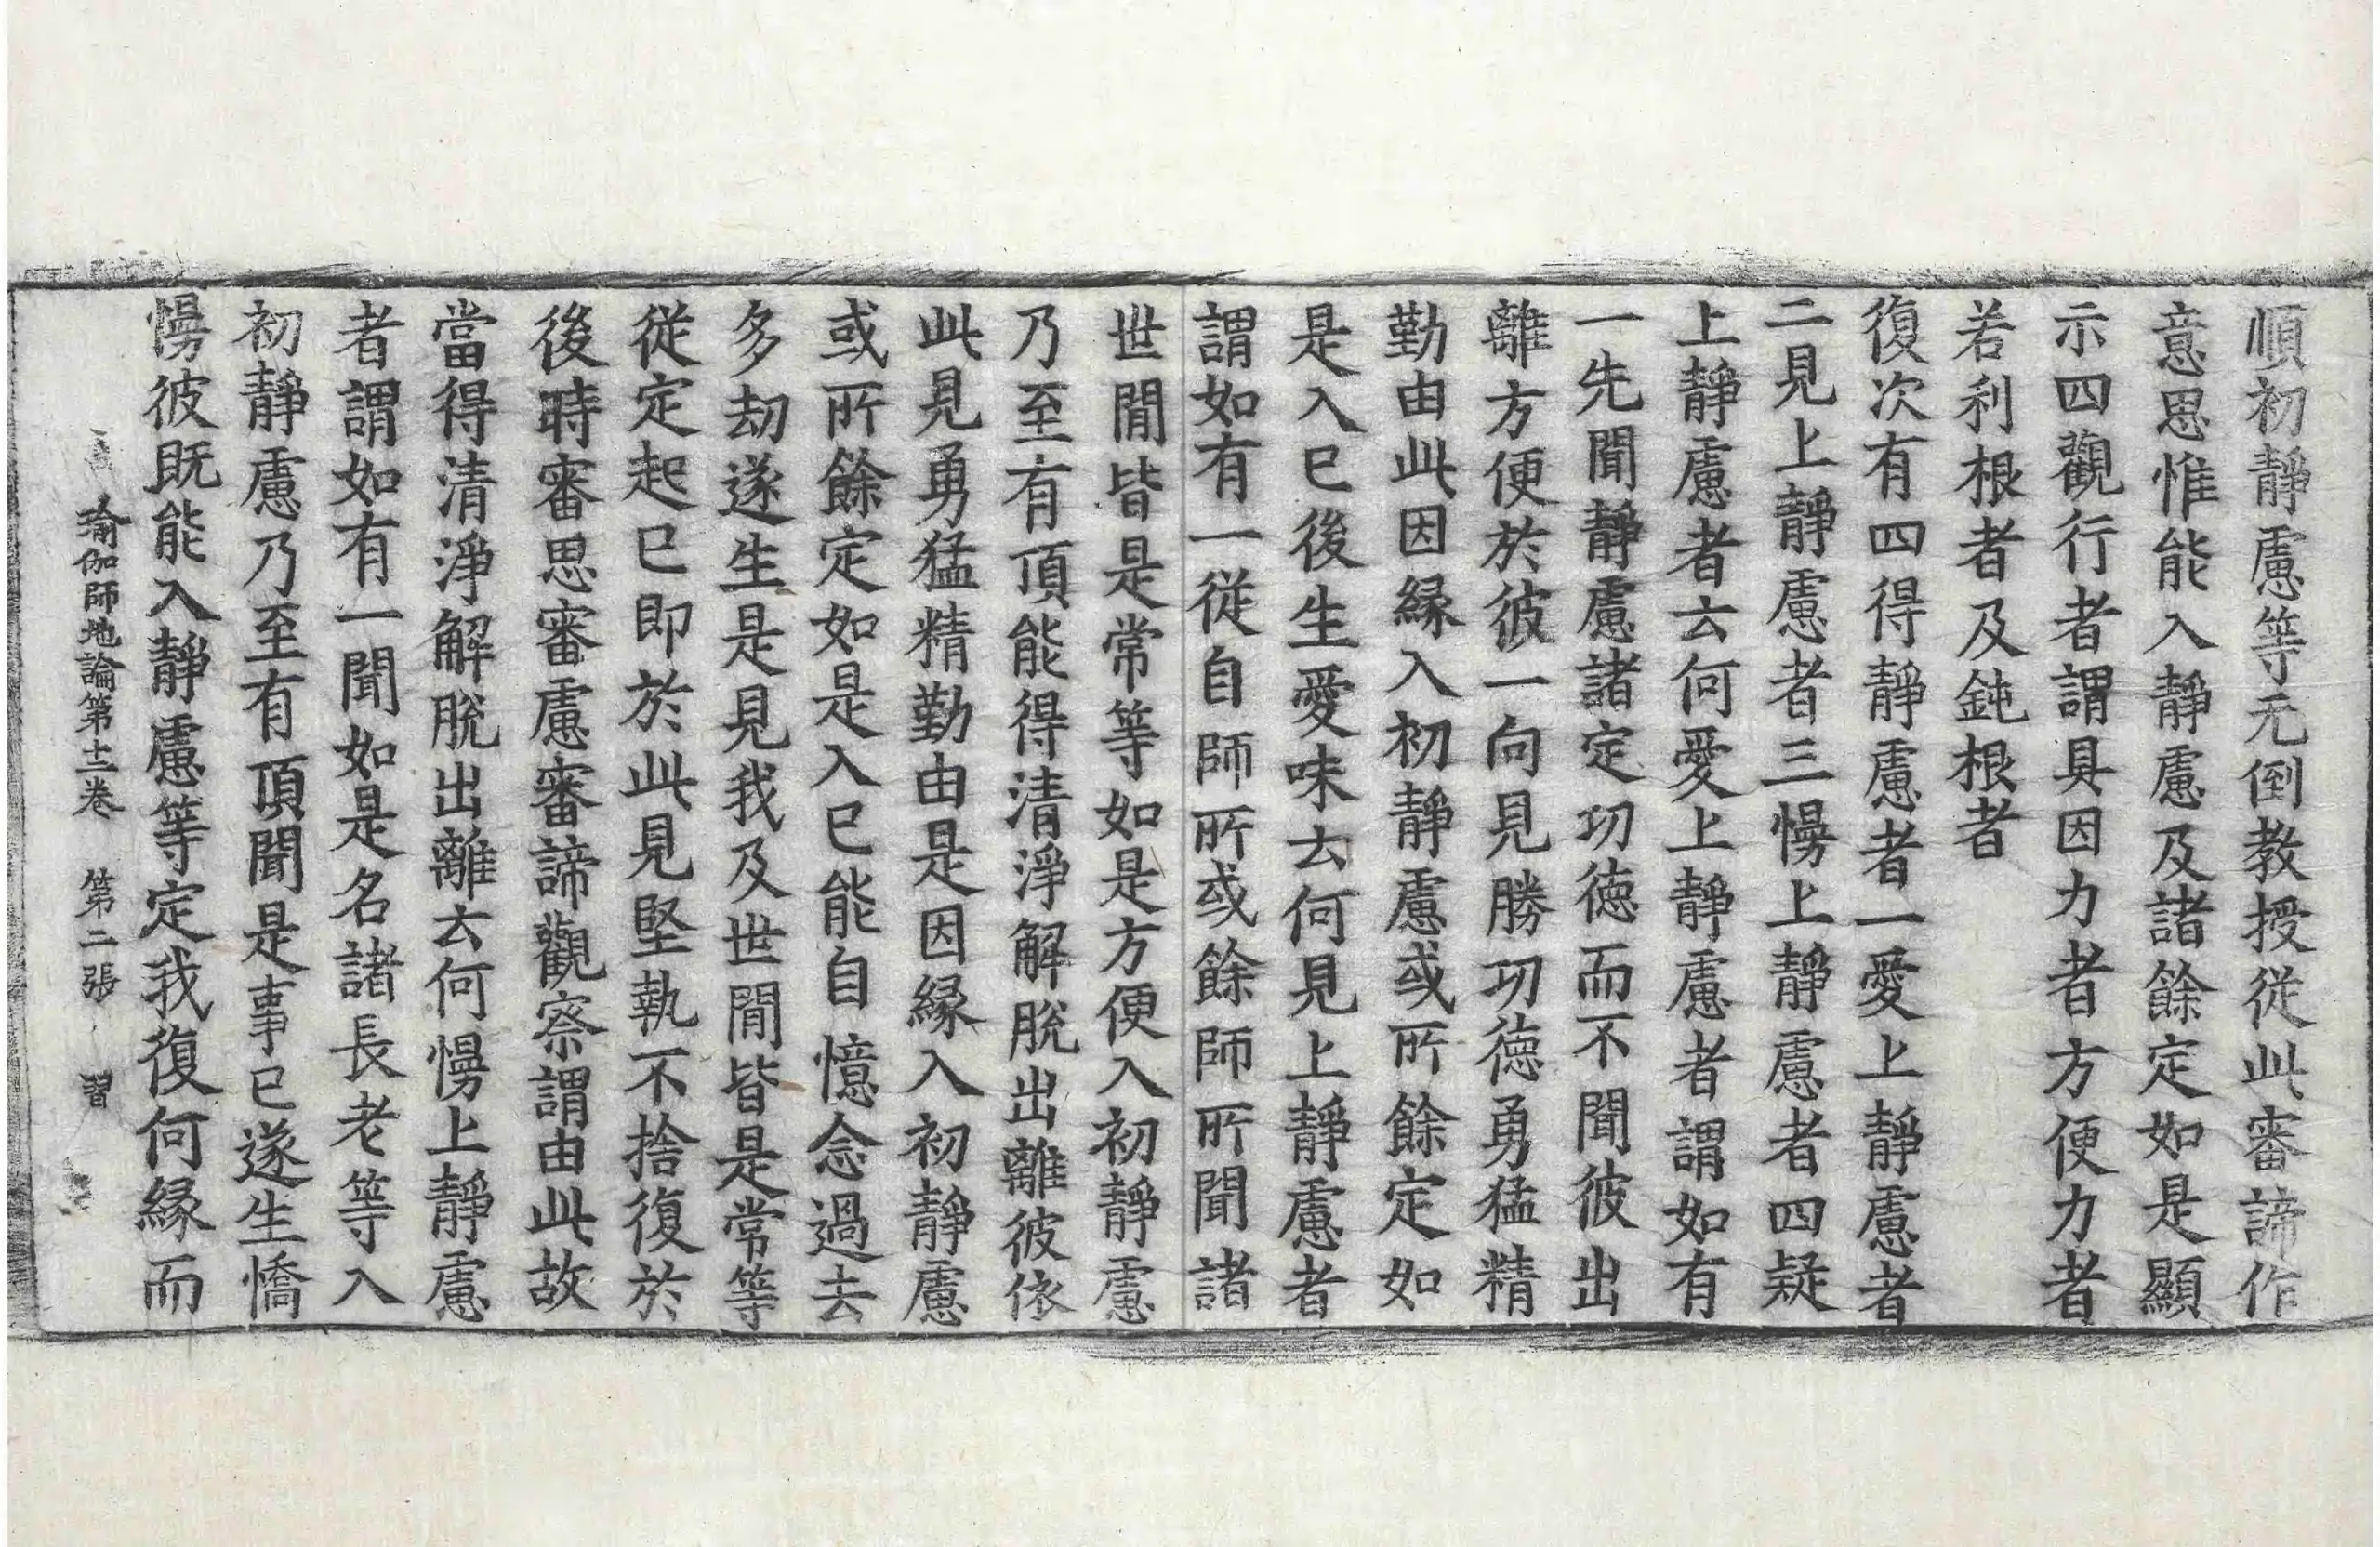 順初靜慮等无倒教授從此審諦作
意思惟能入靜慮及諸餘定如是顯
示四觀行者謂具因力者方便力者
若利根者及鈍根者
復次有四得靜慮者一愛上靜慮者
二見上靜慮者三慢上靜慮者四疑
上靜慮者云何愛上靜慮者謂如有
一先聞靜慮諸定功德而不聞彼出
離方便於彼一向見勝功德勇猛精
勤由此因緣入初靜慮或所餘定如
是入已後生愛味云何見上靜慮者
謂如有一從自師所或餘師所聞諸
世間皆是常等如是方便入初靜慮
乃至有頂能得清淨解脫出離彼依
此見勇猛精勤由是因緣入初靜慮
或所餘定如是入已能自憶念過去
多劫遂生是見我及世間皆是常等
從定起已即於此見堅執不捨復於
後時審思審慮審諦觀察謂由此故
當得清淨解脫出離云何慢上靜慮
者謂如有一聞如是名諸長老等入
初靜慮乃至有頂聞是事已遂生憍
慢彼既能入靜慮等定我復何緣而
瑜伽師地論第十二卷 第二張 習